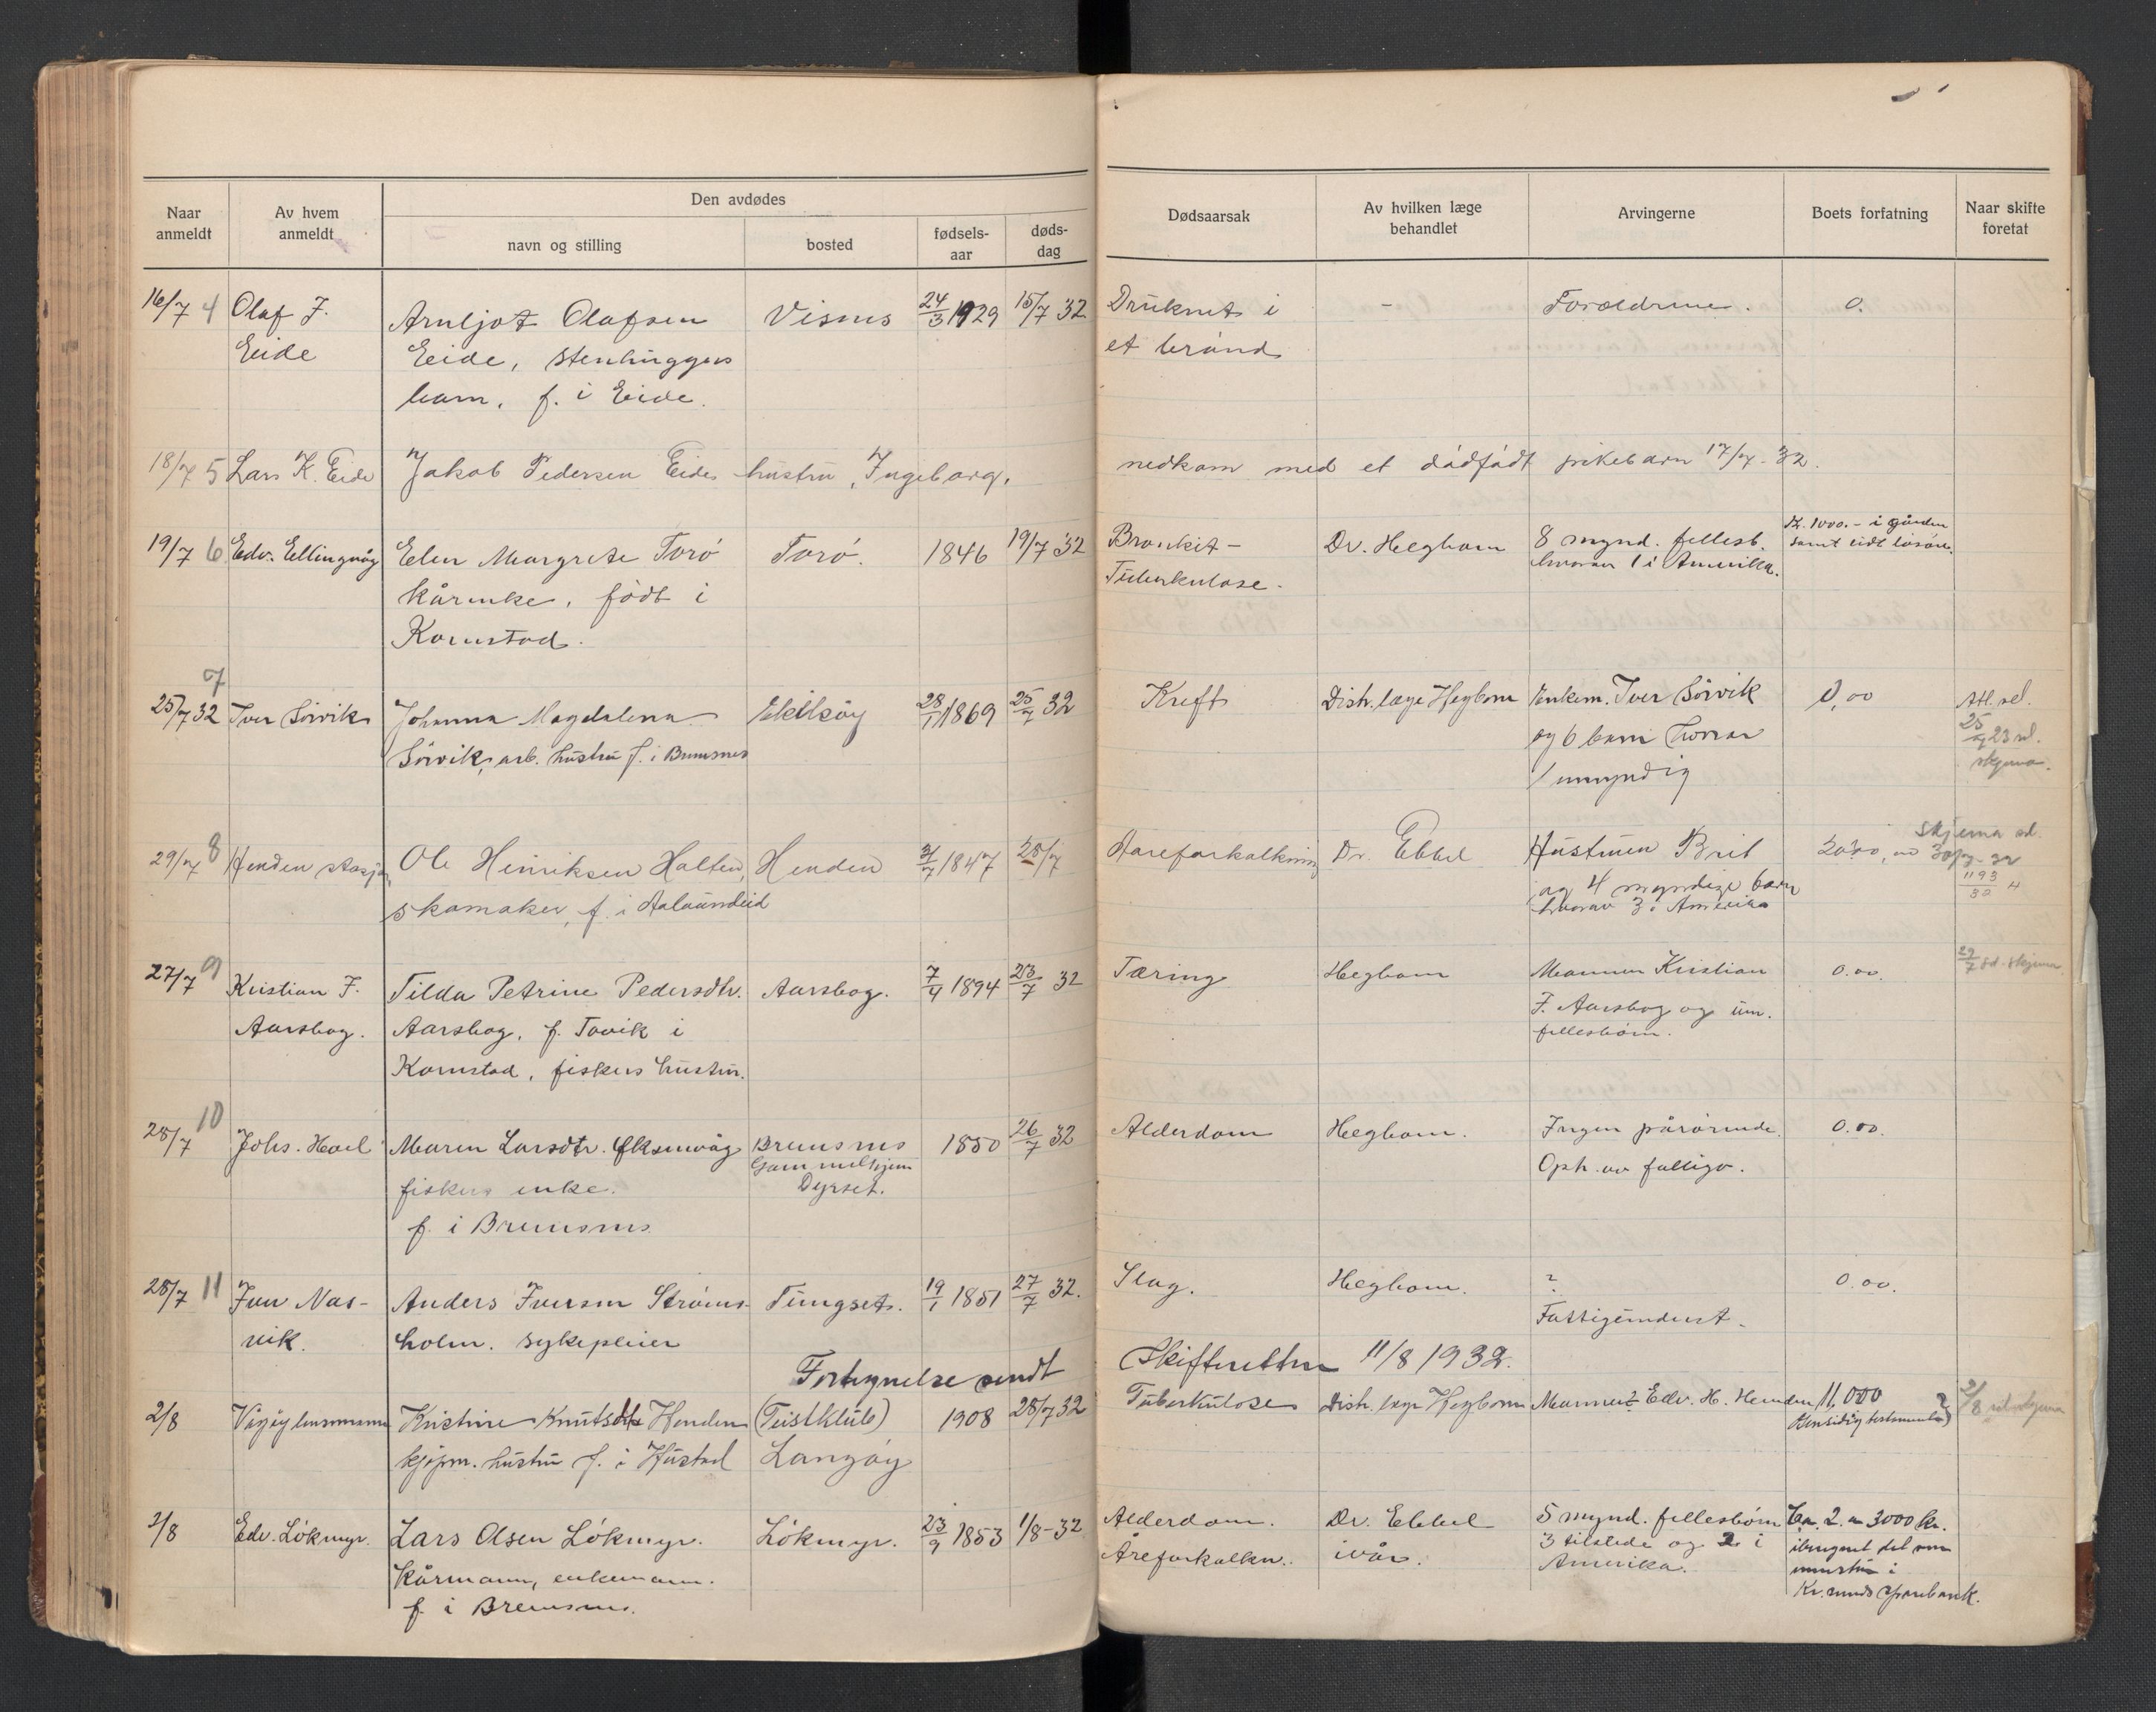 Naar anmeldt
Av hvem anmeldt
Den avdødes
navn og stilling
bosted
fødsels-aar
døds-dag
Dødsaarsak
Av hvilken læge behandlet
Arvingerne
Boets forfatning
Naar skifte foretat
16/7 4 Olaf J. Arnljot Olafsen Visnes 24/3 1929 15/7 32 Druknet i - Forældrene. 0.
Eide Eide, stenhuggers et brønd
barn. f. i Eide.
18/7 5 Lars K. Eide Jakob Pedersen Eides hustru, Ingeborg, nedkom med et dødfødt pikebarn 17/7-32.
19/7 6 Edv. Ellingvåg Elen Margrete Torø Torø. 1846 19/7 32 Bronkit- Dr. Hegbom 8 mynd. fellesb. Kr. 1000.- i gården
kårenke, født i Tuberkulose. hvorav 1 i Amerika. samt lidt løsøre.
Kornstad.
7
25/7 32 Iver Sörvik Johanna Magdalena Ekilsöy 28/11 1869 25/7 32 Kreft Distr. læge Hegbom Enkem. Iver Sörvik 0,00 Att. sd.
Sörvik, arb. hustru f. i Bremsnes og 6 barn hvorav 25/7 23 sd.
1 umyndig skjema.
29/7 8 Henden stasjon Ole Henriksen Holten, Henden 1847 25/7 Aareforkalkning Dr. Ebbel Hustruen Brit skjema sd.
skomaker, f. i og 4 myndige barn 30/7-32
hvorav 3 i Amerika 1193/32
27/7 9 Kristian F. Tilda Petrine Pedersdtr. Aarsbog. 7/4 1894 23/7 32 Tæring Hegbom Mannen Kristian 0.00. 29/7 sd. skjema.
Aarsbog. Aarsbog, f. Tovik i F. Aarsbog og um.
Kornstad, fiskers hustru. fellesbörn.
28/7 10 Johs. Hoel Maren Larsdtr. Øksenvåg Bremsnes 1850 26/7 32 Alderdom Hegbom. Ingen pårørende. 0.00.
fiskers enke. Gammelhjem Oph. av fattigv.
f. i Bremsnes Dyrset.
28/7 11 Jon Nas- Anders Iversen Strøms- Tungset. 19/1 1851 27/7 32. Slag. Hegbom. ? 0.00.
vik. holm. sykepleier Fattigunderst.
Fortegnelse sendt Skifteretten 11/8 1932.
2/8 Viseylensmann Kristine Knutsdtr Henden (Tustklub) 1908 28/7 32 Tuberkulose Distr. læge Hegbom Mannen Edv. H. Henden 11,000 ? 2/8 sd. skjema
kjøpm. hustru f. i Hustad Langöy (Gensidig testamente)
2/8 Edv. Lökmyr. Lars Olsen Lökmyr. Lökmyr. 23/9 1853 1/8-32 Alderdom. Dr. Ebbel 5 mynd. fellesbörn Ca. 2 a 3000 kr.
Kårmann, enkemann. Åreforkalkn. ivår. 3 tilstede og 2 i iberegnet det som
f. i Bremsnes. Amerika. innestår i
Kr.sunds Sparebank.